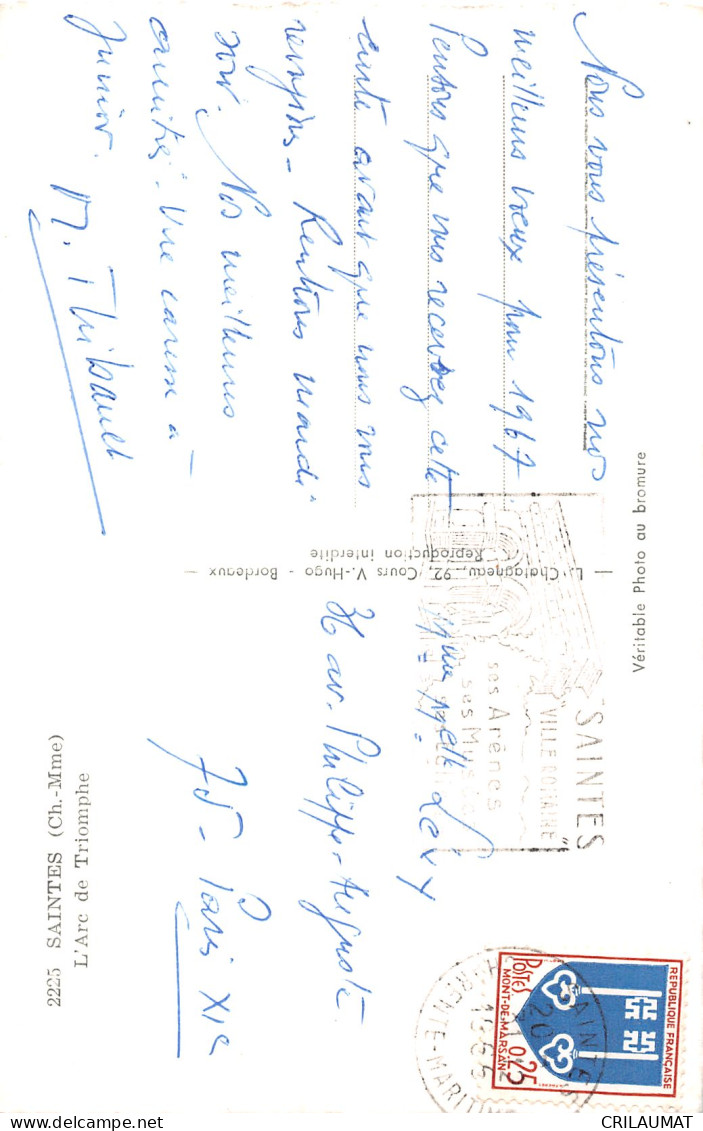 Nous vous présentons nos
meilleurs vœux pour 1967
Pensons que vous recevrez cette
carte avant que nous vous
revoyions - Rentrons mardi
soir. Nos meilleures
amitiés. Une caresse à
Junior.
M. Thibault
Véritable Photo au bromure
L. Chatagneau, 92, Cours V.-Hugo - Bordeaux
Reproduction interdite
"SAINTES
VILLE ROMAINE"
ses Arènes
ses Musées
Lévy
36 av. Philippe-Auguste
75 - Paris XIe
2225 SAINTES (Ch.-Mme)
L'Arc de Triomphe
REPUBLIQUE FRANÇAISE
POSTES
0,25
MONT-DE-MARSAN
SAINTES
CHARENTE-MARITIME
CRILAUMAT